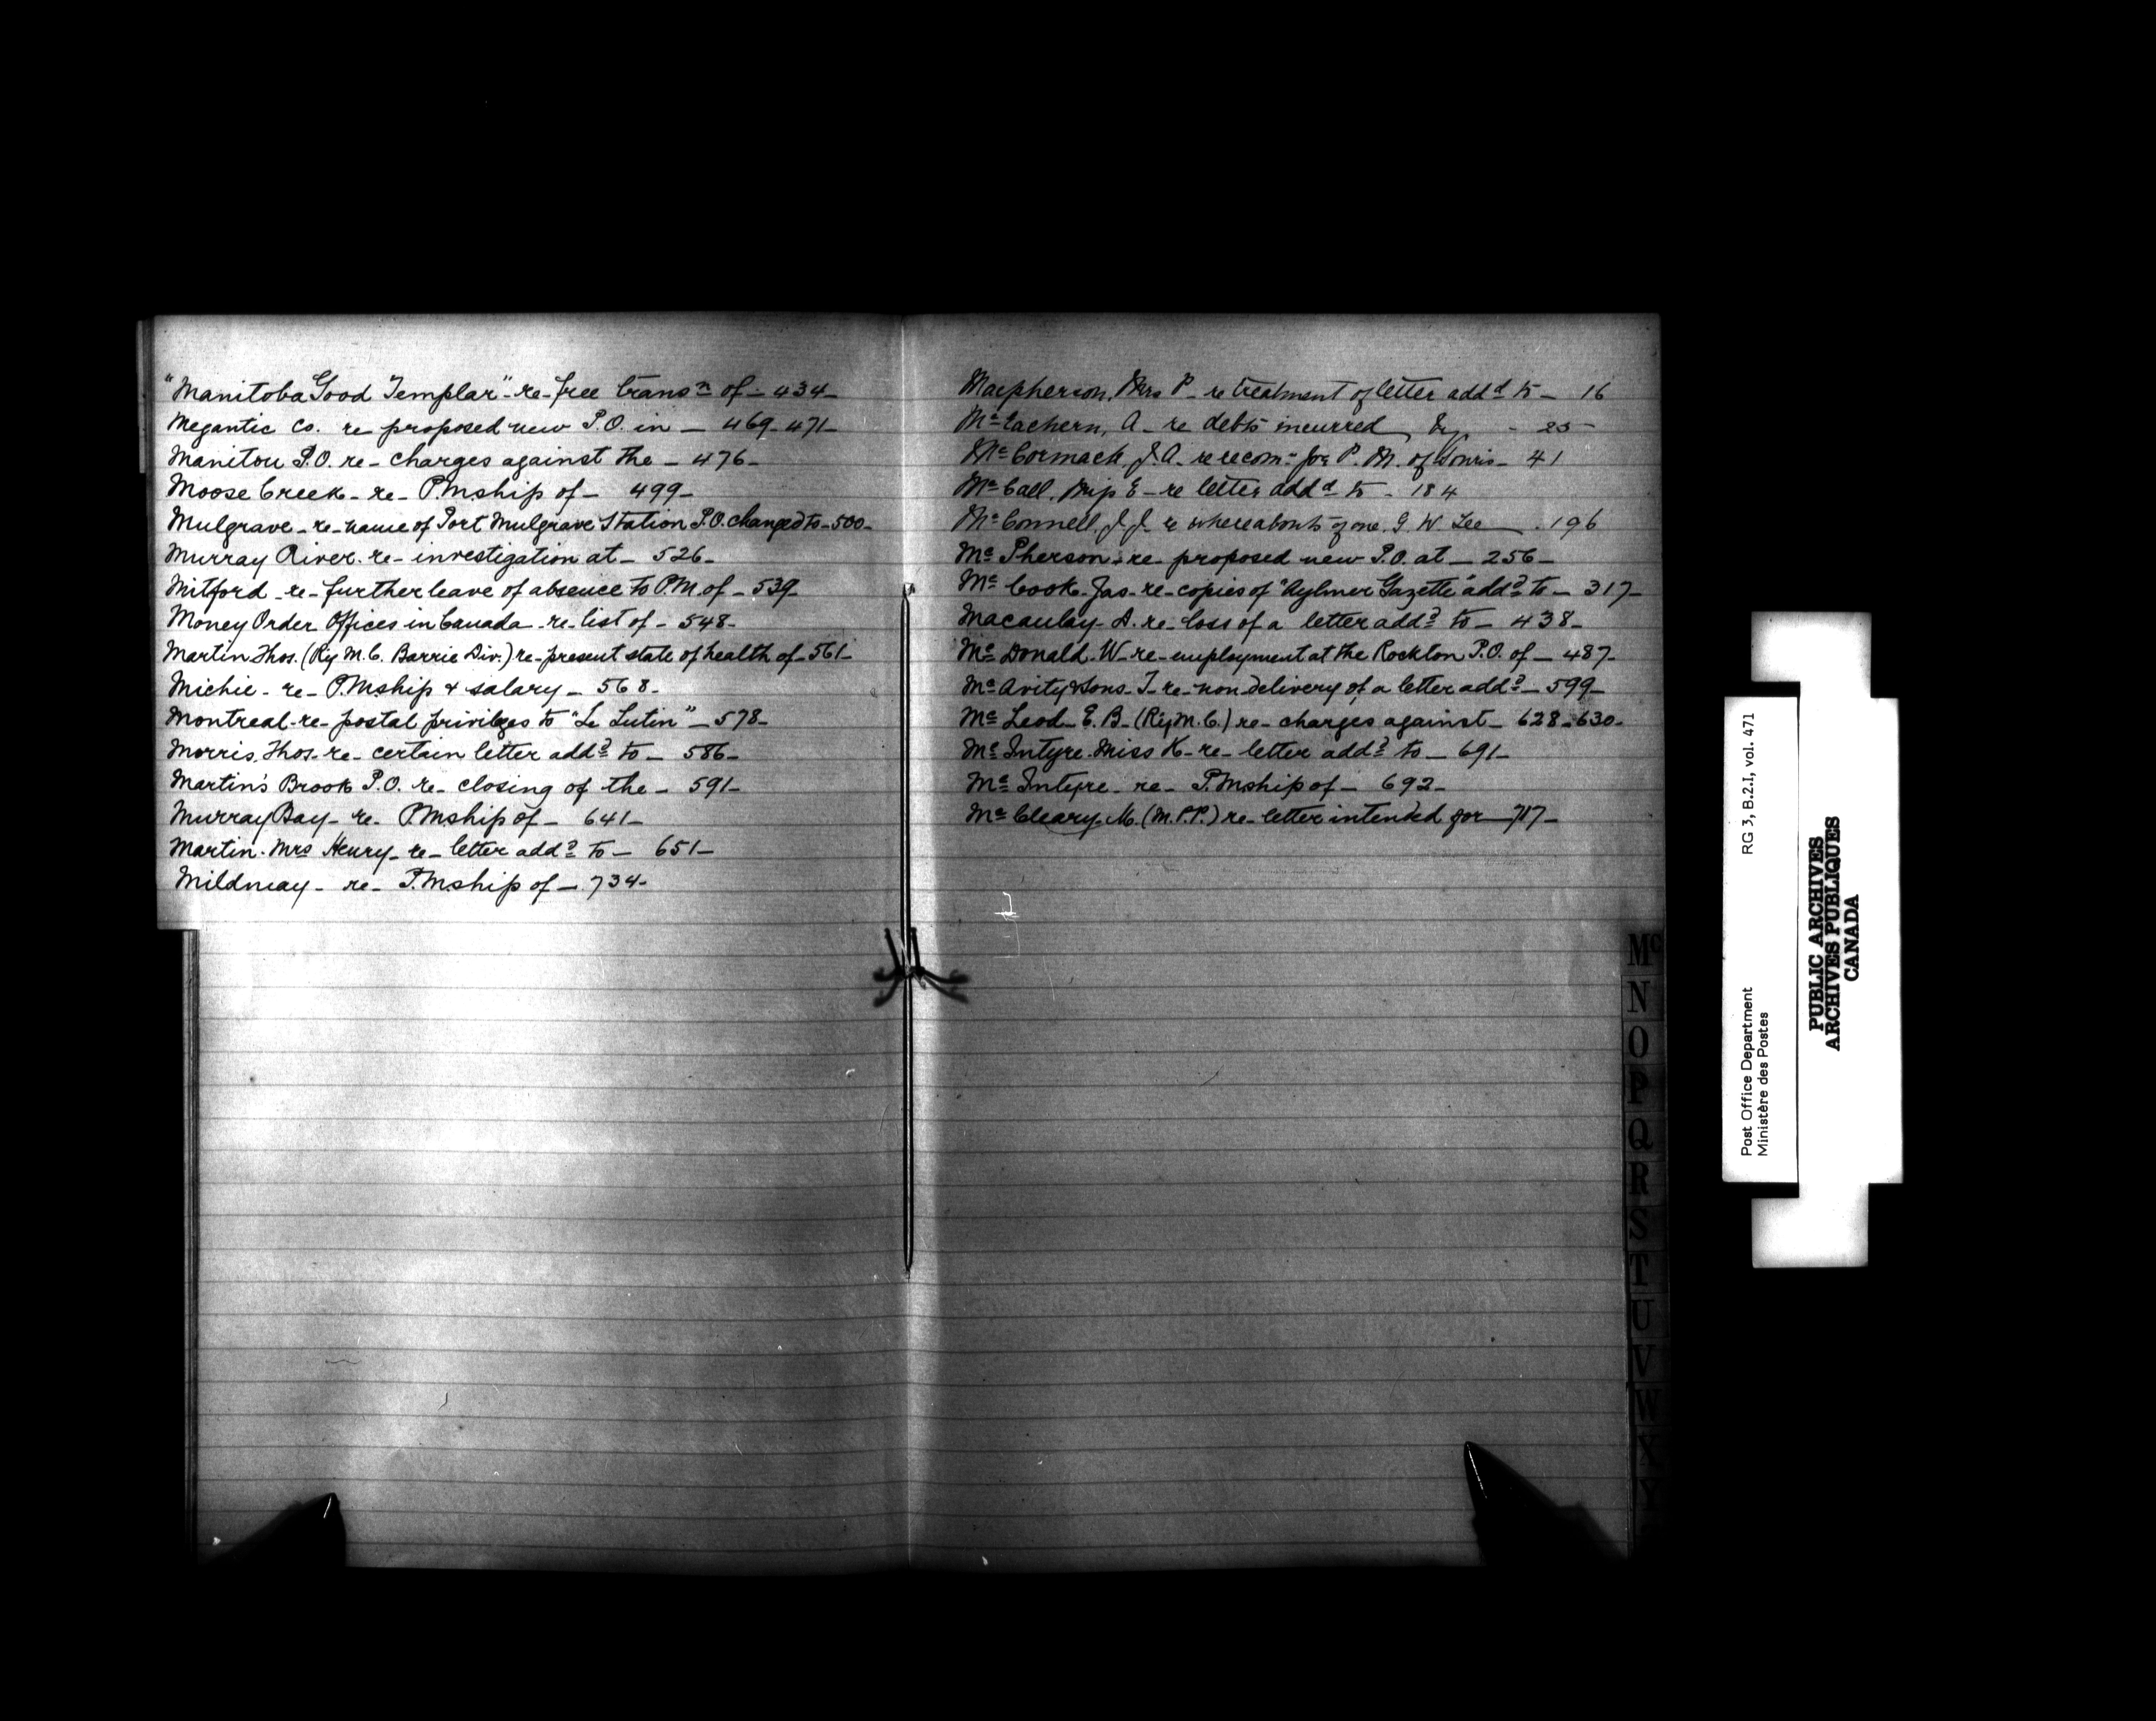 "Manitoba Good Templar" - re - free transn of - 434 -
Megantic Co. re proposed new P.O. in - 469-471 -
Manitou P.O. re - charges against the - 476 -
Moose Creek - re - P.M.ship of - 499 -
Mulgrave - re - name of Port Mulgrave Station P.O. changed to - 500 -
Murray River - re - investigation at - 526 -
Mitford - re - further leave of absence to P.M. of - 539 -
Money Order Offices in Canada - re - list of - 548 -
Martin Thos. (Ry M.C. Barrie Div.) re - present state of health of - 561 -
Michie - re - P.M.ship & salary - 568 -
Montreal - re - postal privileges to "Le Lutin" - 578 -
Morris, Thos. - re - certain letter addd to - 586 -
Martin's Brook P.O. re - closing of the - 591 -
Murray Bay - re - P.M.ship of - 641 -
Martin. Mrs Henry - re - letter addd to - 651 -
Mildmay - re - P.M.ship of - 734 -
Macpherson, Mrs P - re treatment of letter addd to - 16
Mc Eachern, A - re debts incurred by - 25 -
Mc Cormack, J.A. re recom- for P.M. of Souris - 41
Mc Call, E - re letter addd to - 184
Mc Connell, J.J. re whereabouts of one G.W. Lee - 196
Mc Pherson - re - proposed new P.O. at - 256 -
Mc Cook - Jas - re - copies of "Aylmer Gazette" addd to - 317 -
Macaulay - D. re - loss of a letter addd to - 438 -
Mc Donald - W - re - employment at the Rockton P.O. of - 487 -
Mc Avity & Sons - T - re - non delivery of a letter addd - 599 -
Mc Leod - E.B. - (Ry M.C.) re - charges against - 628-630 -
Mc Intyre - Miss K - re - letter addd to - 691 -
Mc Intyre - re - P.M.ship of - 692 -
Mc Cleary - M. (M.P.P.) re - letter intended for - 717 -
Mc
N
O
P
Q
R
S
T
U
V
W
X
Y
Post Office Department
Ministère des Postes
RG 3, B.2.I, vol. 471
PUBLIC ARCHIVES
ARCHIVES PUBLIQUES
CANADA